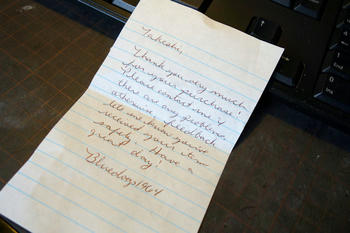 Takeshi,
Thank you very much
for your purchase!
Please contact me if
there are any problems
otherwise feedback
let me know you've
received your item
safely. Have a
great day!
Bluedogs1964